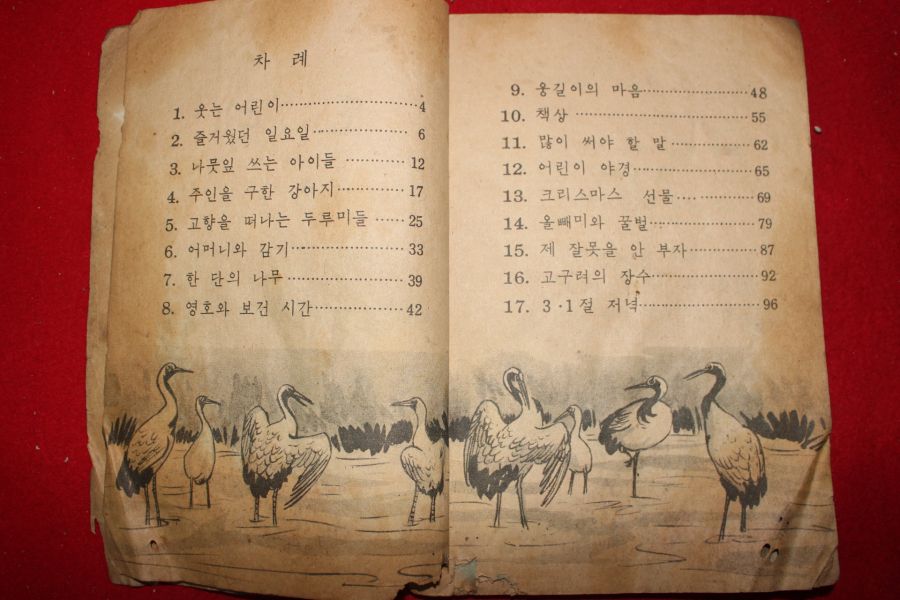 차 례
1. 웃는 어린이……………………4
2. 즐거웠던 일요일……………… 6
3. 나뭇잎 쓰는 아이들 ………… 12
4. 주인을 구한 강아지………… 17
5. 고향을 떠나는 두루미들 …… 25
6. 어머니와 감기……………… 33
7. 한 단의 나무……………… 39
8. 영호와 보건 시간…………… 42
9. 웅길이의 마음………………48
10. 책상 ……………………… 55
11. 많이 써야 할 말 ………… 62
12. 어린이 야경………………65
13. 크리스마스 선물…………69
14. 올빼미와 꿀벌……………79
15. 제 잘못을 안 부자…………87
16. 고구려의 장수………………92
17. 3·1절 저녁…………………96